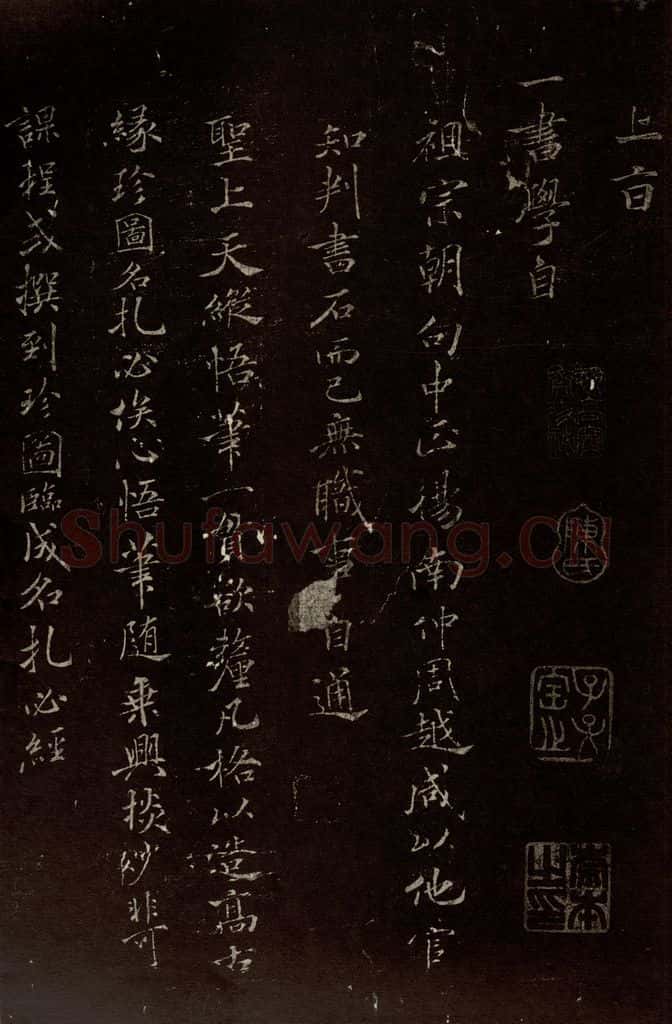 上旨
一書學自
祖宗朝向中正楊南仲周越咸以他官
知判書石而已無職事自通
聖上天縱悟筆一貫欲釐凡格以造高古
緣珍圖名札必俟心悟筆随乘興掞妙非可
課程或撰到珍圖臨成名札必經
子子
寶之
Shufawang.CN